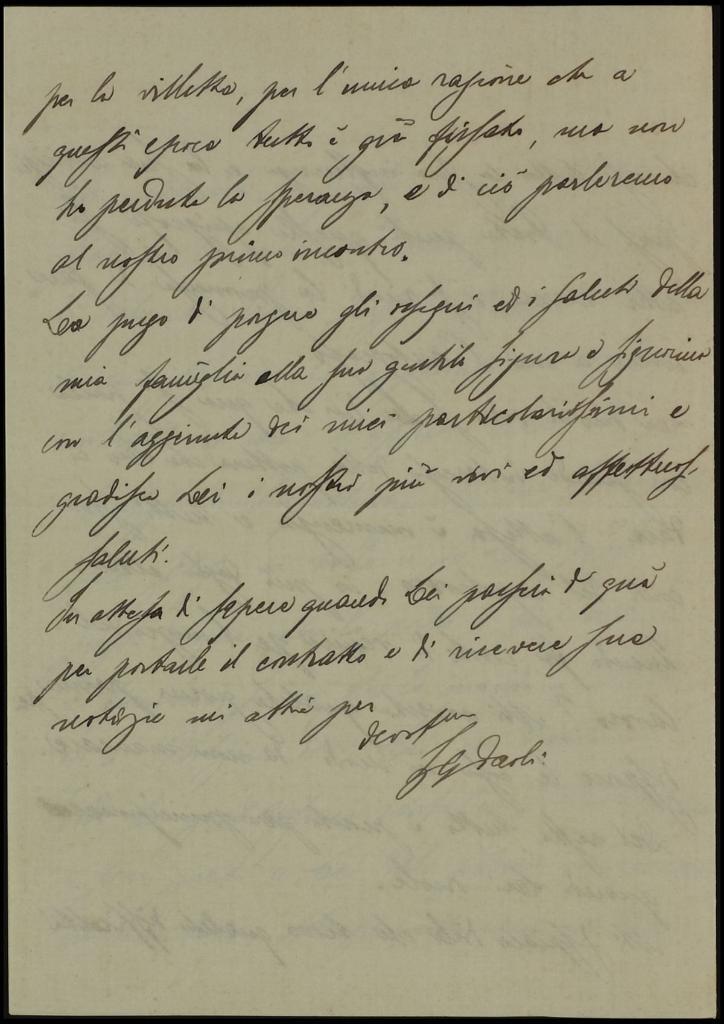 per la villetta, per l'unica ragione che a
quest'epoca tutto è già fissato, ma non
ho perduta la speranza, e di ciò parleremo
al nostro primo incontro.
La prego di porgere gli ossequi ed i saluti della
mia famiglia alla sua gentile signora e signorina
con l'aggiunta dei miei particolarissimi e
gradisca Lei i nostri più vivi ed affettuosi
saluti.
In attesa di sapere quando Lei passerà di quà
per portarle il contratto e di ricevere sue
notizie mi abbia per
devotmo